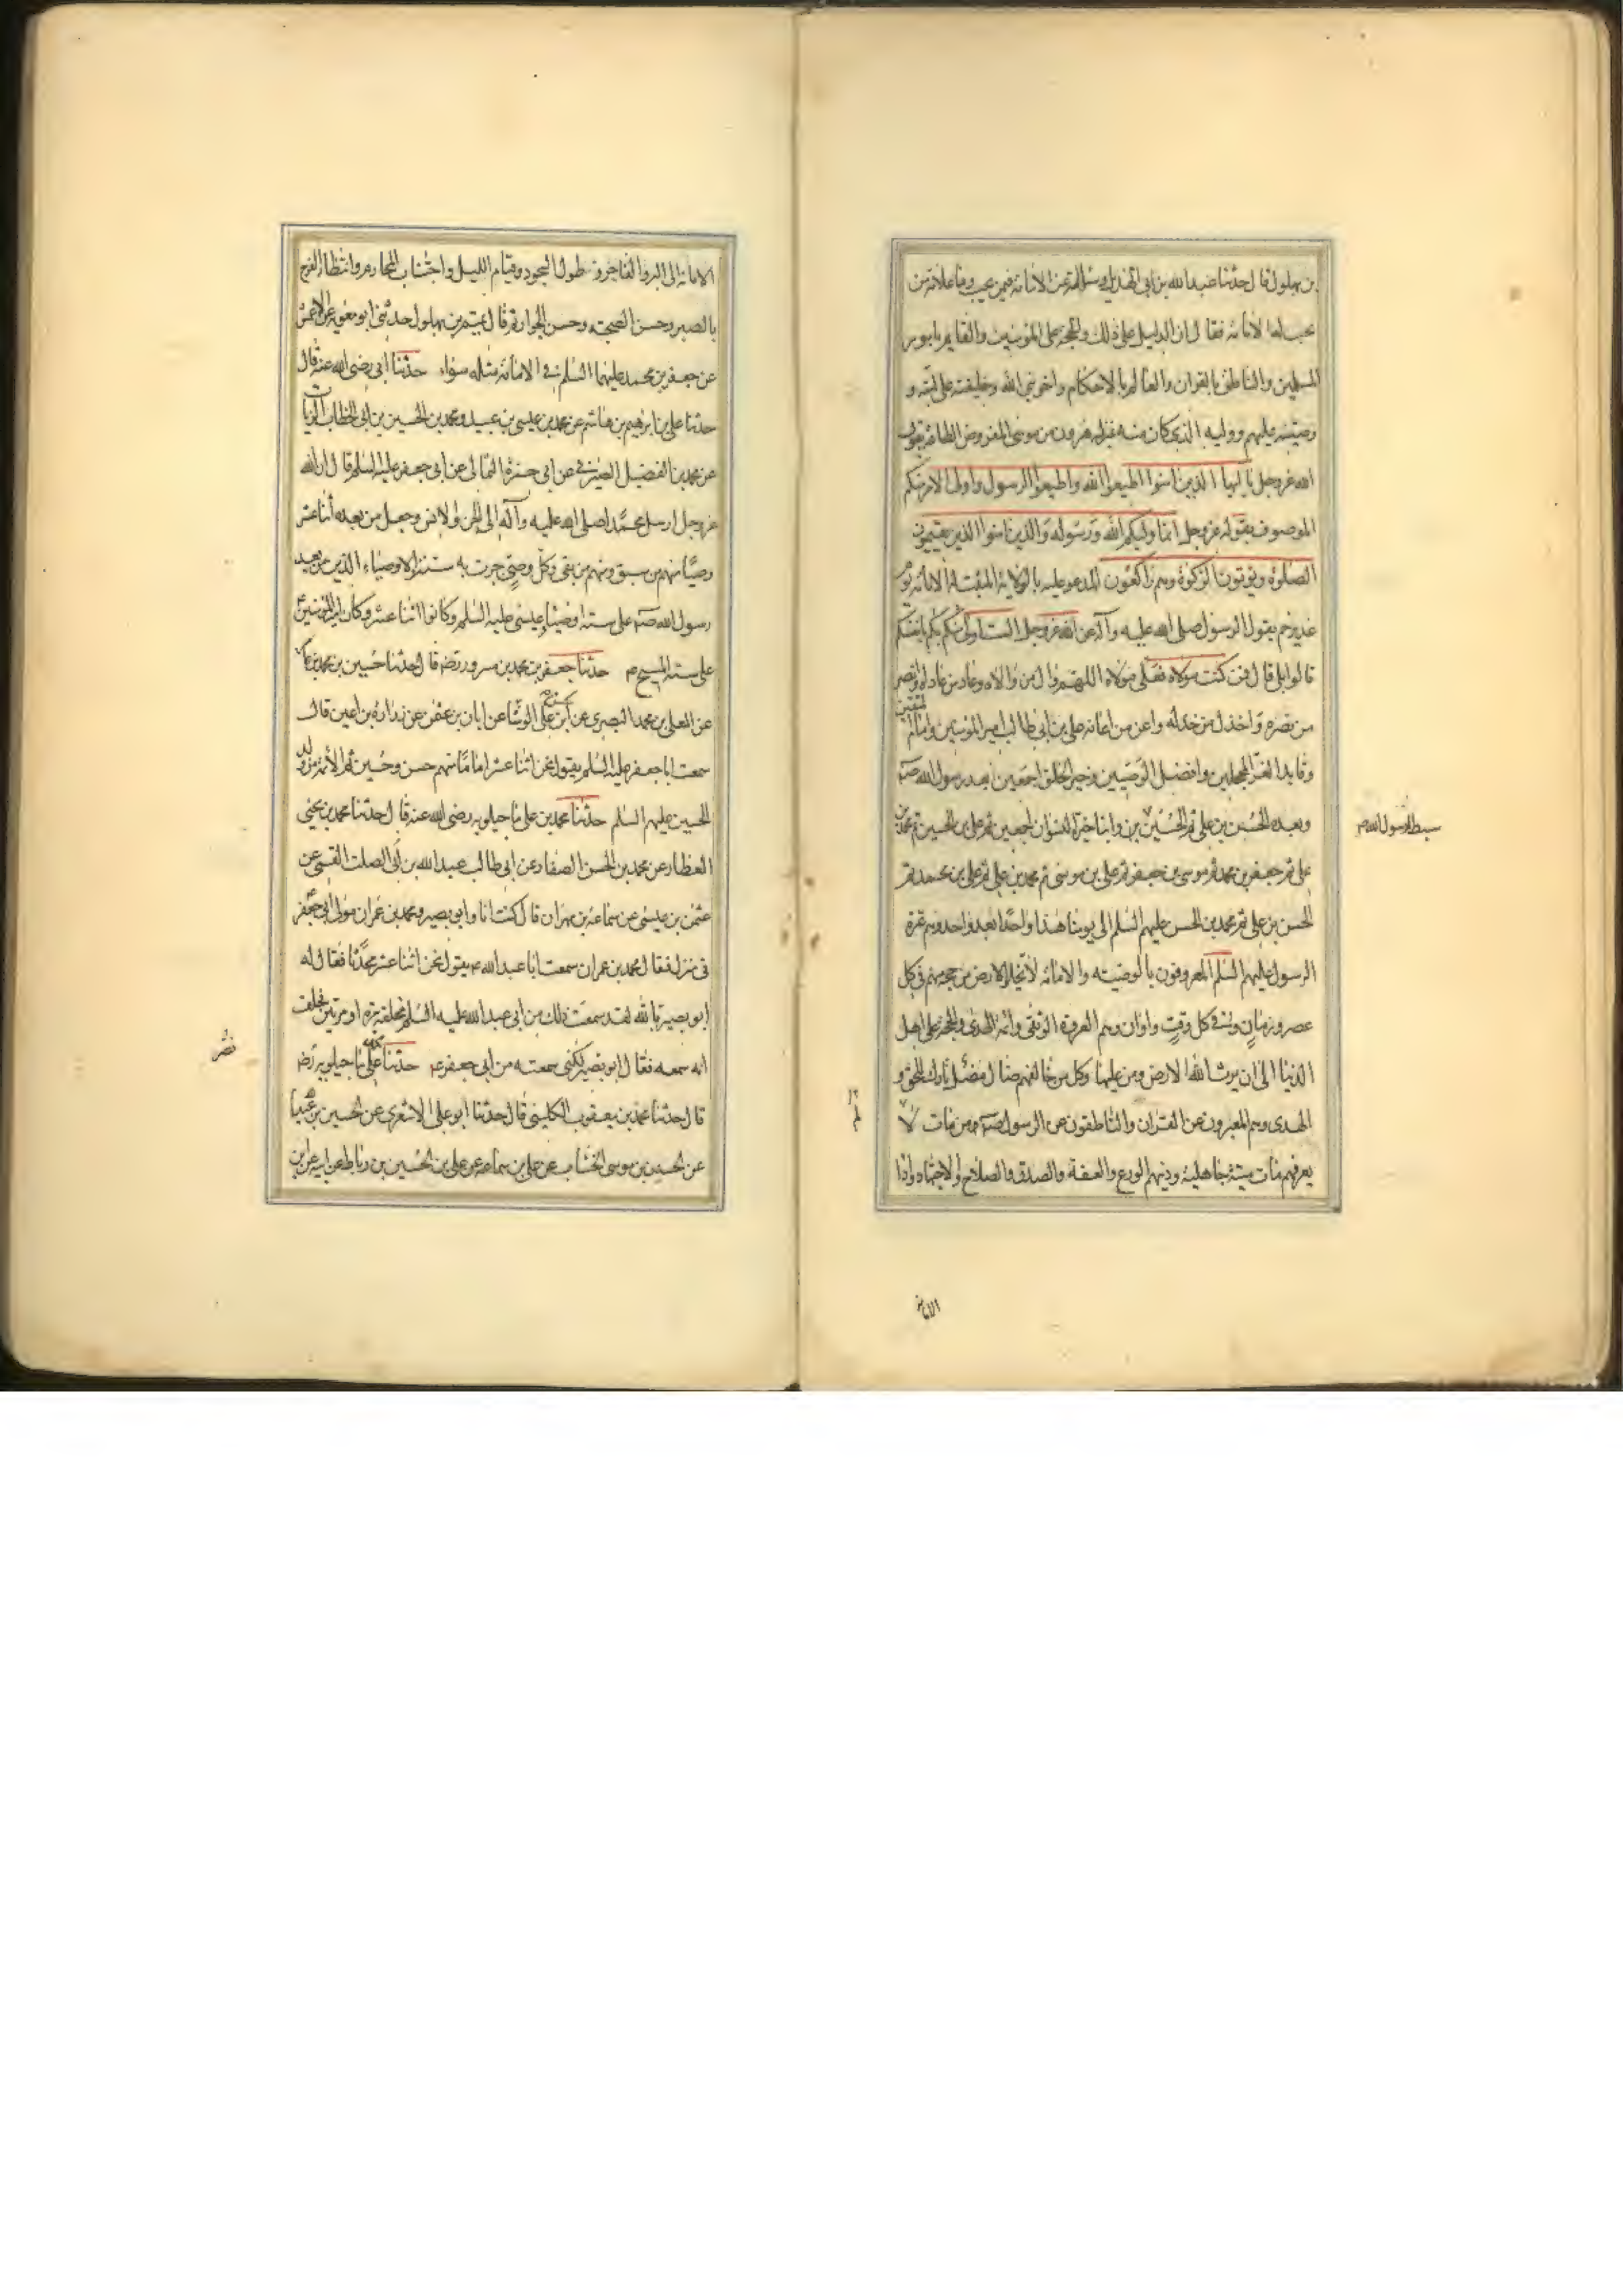 بن بهلول قال حدثنا عبد الله بن ابى الهذيل وسألته عن الامامة فيمن تجب وما علامة من
تجب له الامامة فقال ان الدليل على ذلك والحجة على المؤمنين والقايم بامور
المسلمين والناطق بالقران والعالم بالاحكام واخو نبى الله وخليفته على امته و
وصيته عليهم ووليه الذى كان منه بمنزلة هرون من موسى المفروض الطاعة بقول
الله عز وجل يا ايها الذين امنوا اطيعوا الله واطيعوا الرسول واولى الامر منكم
الموصوف بقوله عز وجل انما وليكم الله ورسوله والذين امنوا الذين يقيمون
الصلوة ويوتون الزكوة وهم راكعون المدعو عليه بالولاية المثبت له الامامة يوم
غدير خم بقول الرسول صلى الله عليه وآله عن الله عز وجل الست اولى منكم بانفسكم
قالوا بلى قال فمن كنت مولاه فعلى مولاه اللهم وال من والاه وعاد من عاداه وانصر
من نصره واخذل من خذله واعن من اعانه على بن ابى طالب امير المؤمنين وامام المتقين
وقايد الغر المحجلين وافضل الوصيين وخير الخلق اجمعين بعد رسول الله صلعم
وبعده الحسن بن على ثم الحسين بن وابنا خيرة النسوان اجمعين ثم على بن الحسين ثم محمد بن
سبطا رسول الله ص
على ثم جعفر بن محمد ثم موسى بن جعفر ثم على بن موسى ثم محمد بن على ثم على بن محمد ثم
الحسن بن على ثم محمد بن الحسن عليهم السلم الى يومنا هذا واحدا بعد واحد وهم عترة
الرسول عليهم السلم المعروفون بالوصيته والامامة لا تخلو الارض من حجة منهم فى كل
عصر وزمان وفى كل وقت واوان وهم العروة الوثقى وائمة الهدى والحجة على اهل
الدنيا الى ان يرث الله الارض ومن عليها وكل من خالفهم ضال مضل تارك للحق و
الهدى وهم المعبرون عن القران والناطقون عن الرسول صلعم ومن مات لا
يعرفهم مات ميتة جاهلية ودينهم الورع والعفة والصدق والصلاح والاجتهاد واداء
الامانة
الامانة الى البر والفاجر وطول السجود وقيام الليل واجتناب المحارم وانتظار الفرج
بالصبر وحسن الصحبة وحسن الجوار ثم قال تميم بن بهلول حدثنى ابو معوية عن الاعمش
عن جعفر بن محمد عليهما السلم فى الامامة مثله سواء حدثنا ابى رضى الله عنه قال
حدثنا على بن ابرهيم بن هاشم عن محمد بن عيسى بن عبيد ومحمد بن الحسين بن ابى الخطاب الزيات
عن محمد بن الفضيل الصيرفى عن ابى حمزة الثمالى عن ابى جعفر عليه السلم قال ان الله
عز وجل ارسل محمدا صلى الله عليه وآله الى الجن والانس وجعل من بعده اثنا عشر
وصيا منهم من سبق ومنهم من بقى وكل وصى جرت به سنة والاوصياء الذين من بعد
رسول الله صلعم على سنة اوصياء عيسى عليه السلم وكانوا اثنا عشر وكان امير المؤمنين
على سنة المسيح ع حدثنا جعفر بن محمد بن مسرور رضه قال حدثنا حسين بن محمد بن عامر
عن المعلى بن محمد البصرى عن الحسن بن على الوشا عن ابان بن عثمن عن زرارة بن اعين قال
سمعت ابا جعفر عليه السلم يقول نحن اثنا عشر اماما منهم حسن وحسين ثم الائمة من ولد
الحسين عليهم السلم حدثنا محمد بن على ماجيلويه رضى الله عنه قال حدثنا محمد بن يحيى
العطار عن محمد بن الحسن الصفار عن ابى طالب عبد الله بن ابى الصلت القمى عن
عثمن بن عيسى عن سماعة بن مهران قال كنت انا وابو بصير ومحمد بن عمران مولى ابى جعفر
فى منزل فقال محمد بن عمران سمعت ابا عبد الله ع يقول نحن اثنا عشر محدثا فقال له
ابو بصير تالله لقد سمعت ذلك من ابى عبد الله عليه السلم فحلفه مرة او مرتين فحلف
انه سمعه فقال ابو بصير لكنى سمعته من ابى جعفر ع حدثنا محمد بن على ماجيلويه رضه
قال حدثنا محمد بن يعقوب الكلينى قال حدثنا ابو على الاشعرى عن الحسين بن عبيد الله
عن الحسن بن موسى الخشاب عن على بن سماعة عن على بن الحسين بن رباط عن ابيه عن ابن